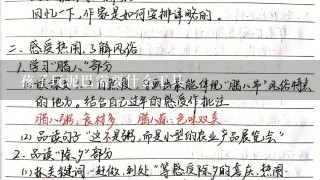 回忆一下,作家是如何安排详略的。
二、感受热闹,了解风俗
1.学习“腊八”部分
孩子玩泥巴需要什么工具
的地方。结合自己过年的感受作批注
腊八粥:食材多 腊八蒜:色味双美
(2)品读句子“这不是粥,而是小型的农业产品展览会”
2.品读“除夕”部分
(1)抓关键词,赶做、到处”等感受除夕的喜庆、热闹